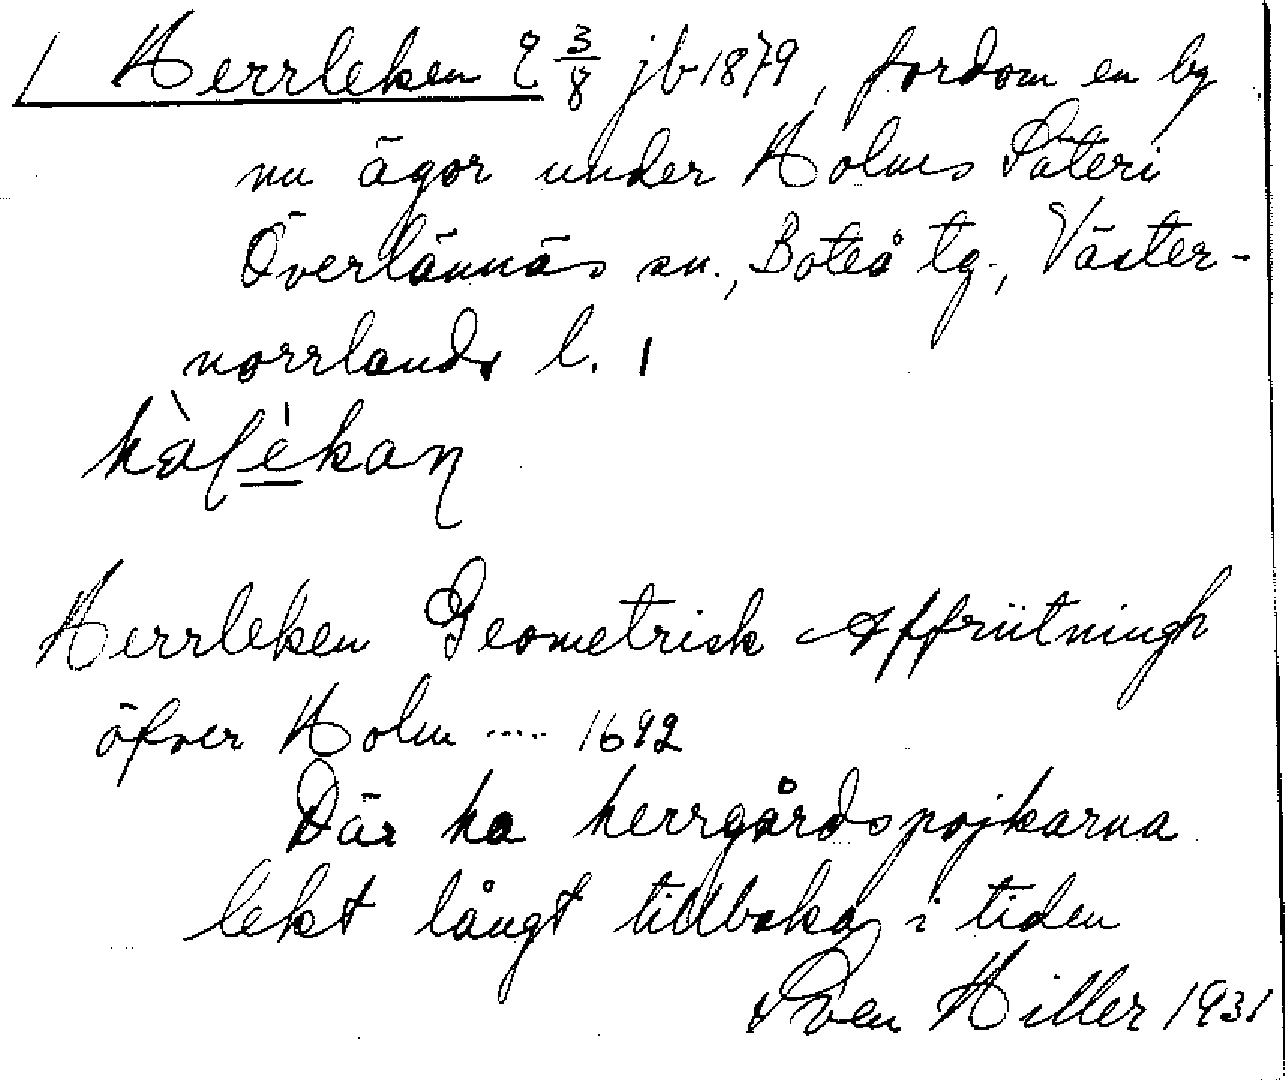 / Herrleken 2 3/8 jb 1879, fordom en by
nu ägor under Holms Säteri
Överlännäs sn., Boteå tg., Väster-
norrlands l. 1
Herrleken Geometrisk Affriitningh
öfver Holm ..... 1692
Där ha herrgårdspojkarna
lekt långt tillbaka i tiden
Sven Hiller 1931